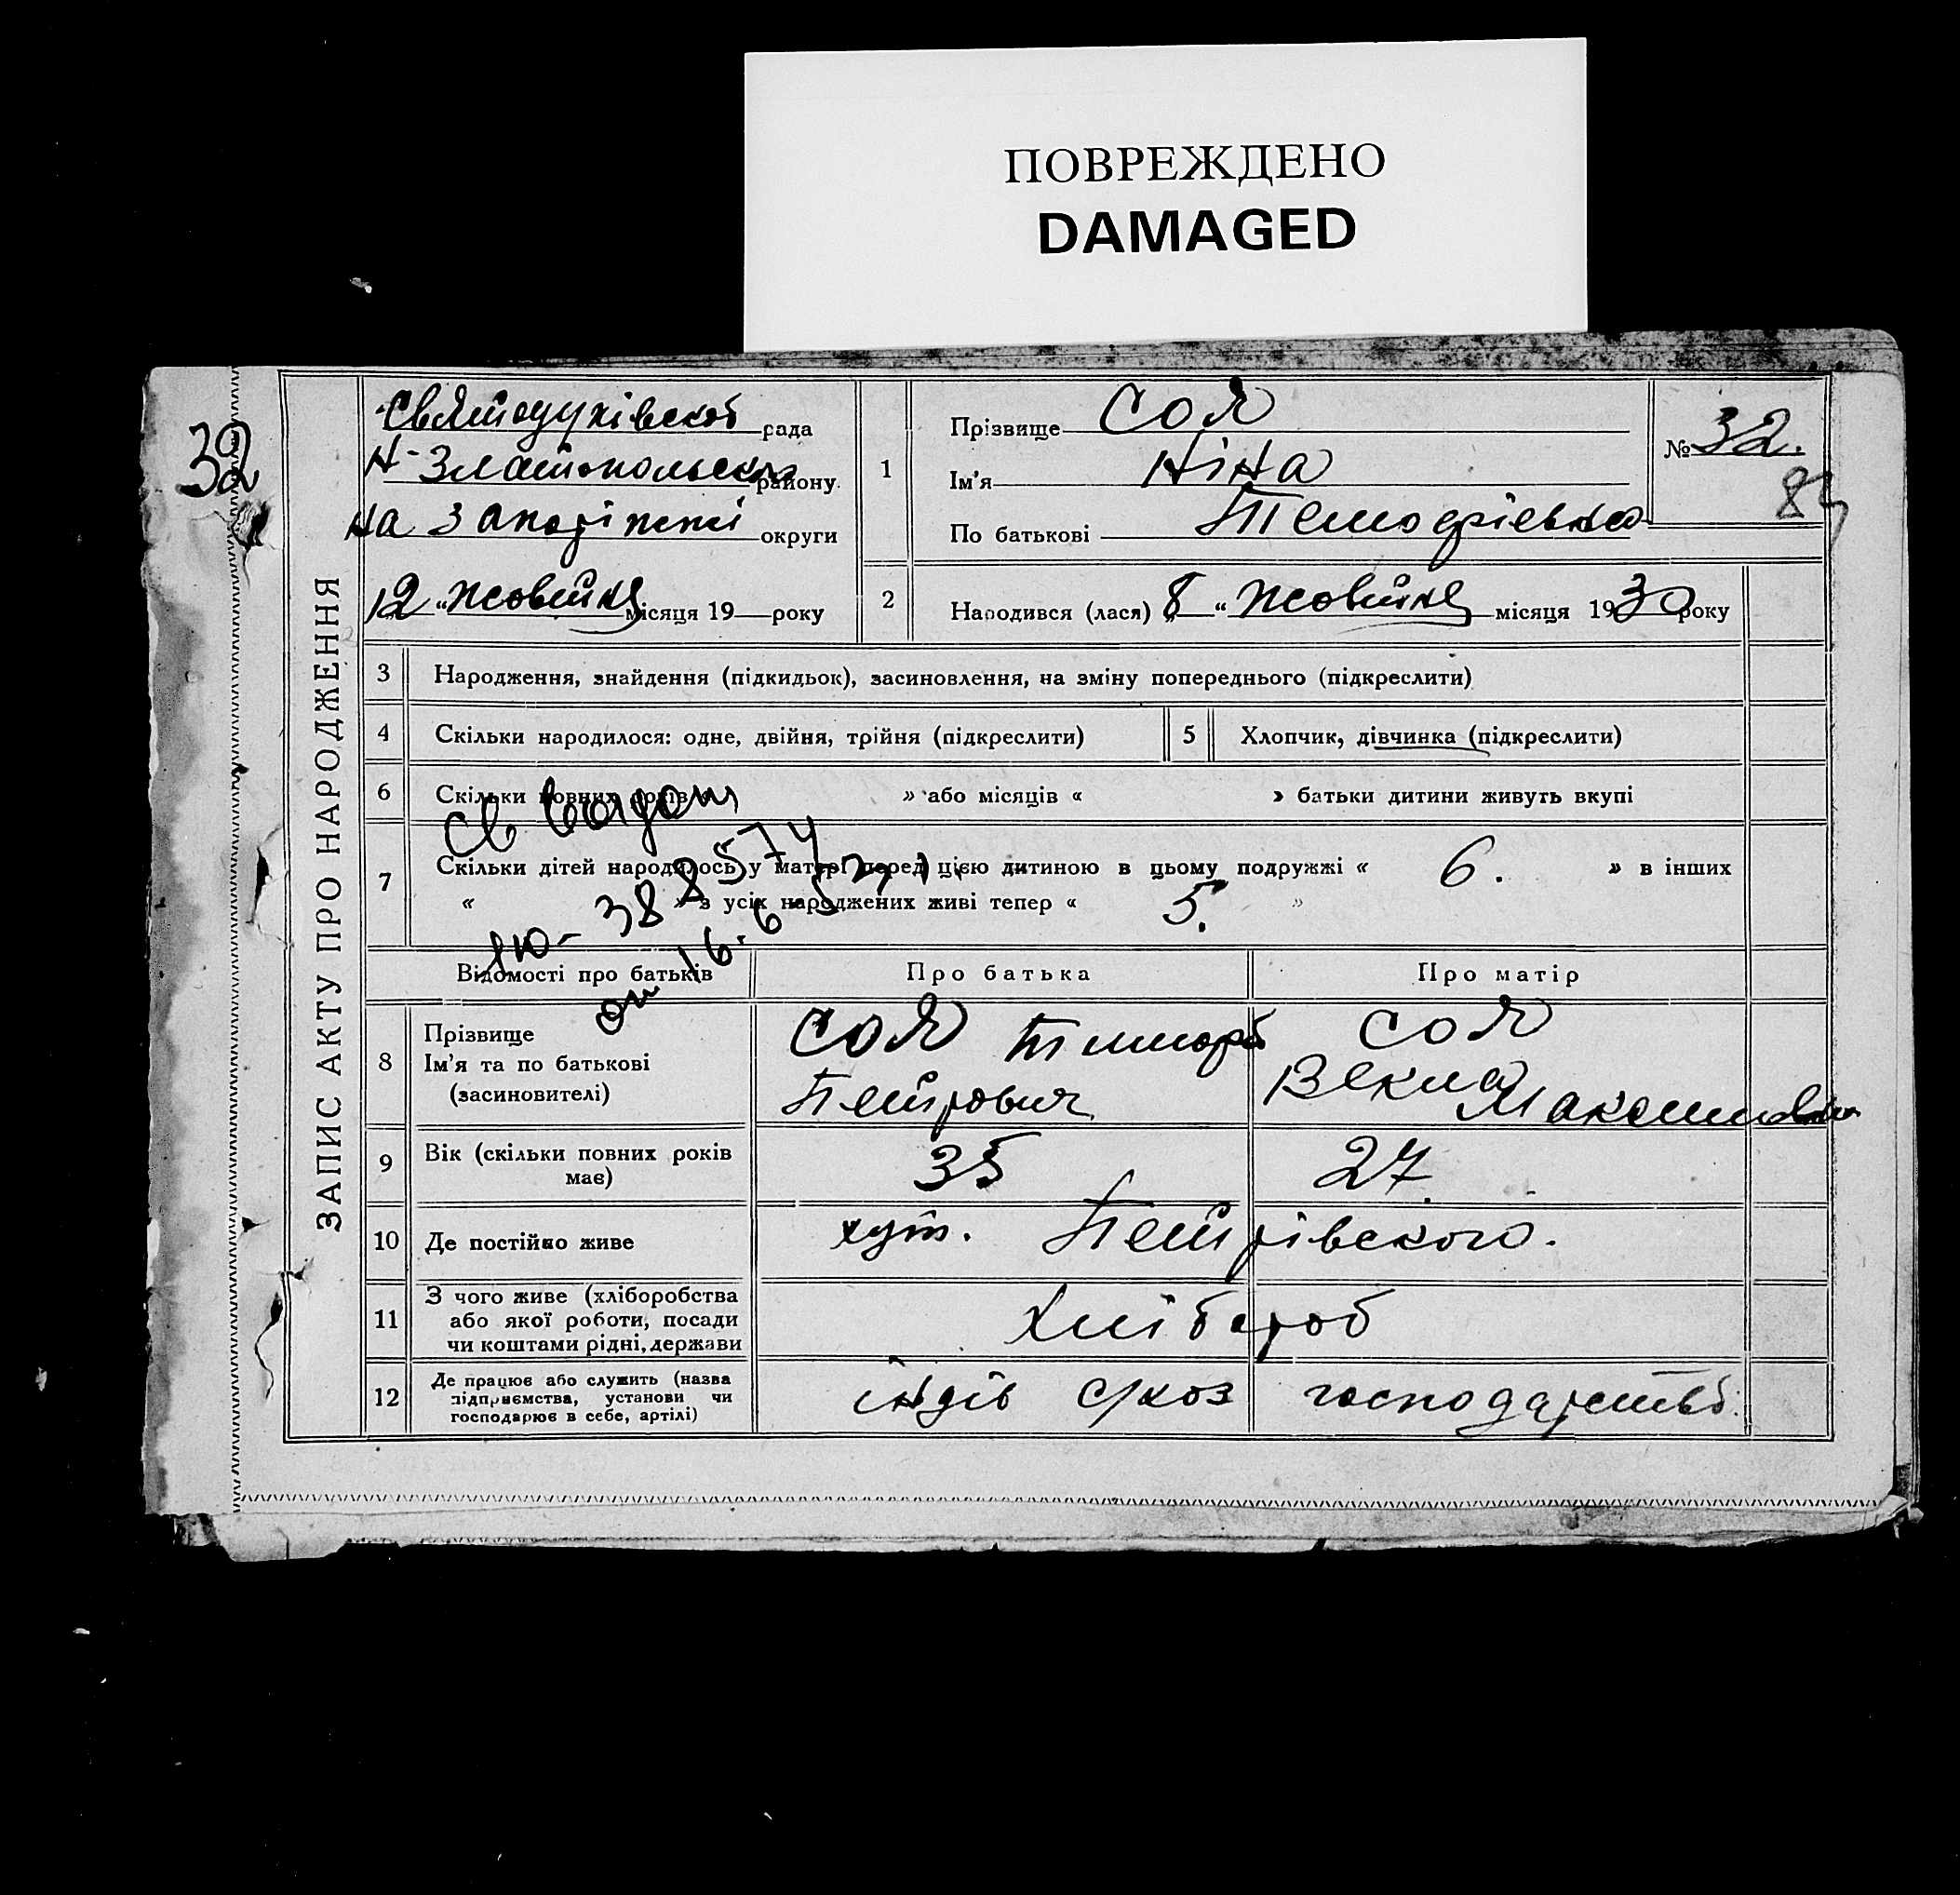 ПОВРЕЖДЕНО
DAMAGED
32
ЗАПИС АКТУ ПРО НАРОДЖЕННЯ
Святодухівской рада
Н-Златопольськ району
на Запоріжжі округи
12 „ Жовтня місяця 19 року
1
Прізвище Соя
Ім’я Ніна
По батькові Темофієвна
№ 32.
2
Народився (лася) „ 8 “ Жовтня місяця 1930 року
3 Народження, знайдення (підкидьок), засиновлення, на зміну попереднього (підкреслити)
4 Скільки народилося: одне, двійня, трійня (підкреслити)
5 Хлопчик, дівчинка (підкреслити)
6 Скільки повних років « » або місяців « » батьки дитини живуть вкупі
Св видан
7 Скільки дітей народилось у матері перед цією дитиною в цьому подружжі « 6. » в інших
« » з усіх народжених живі тепер « 5. »
ЯЮ- 388574
от 16.6
Відомості про батьків Про батька Про матір
8
Прізвище
Ім’я та по батькові
(засиновителі)
Соя Тимофій
Петрович
Соя
Векла
Максимовна
9 Вік (скільки повних років
має)
35 27.
10 Де постійно живе хут. Петрівского.
11 З чого живе (хліборобства
або якої роботи, посади
чи коштами рідні, держави
Хлібороб
12 Де працює або служить (назва
підприємства, установи чи
господарює в себе, артілі)
індів с/хоз господарстві.